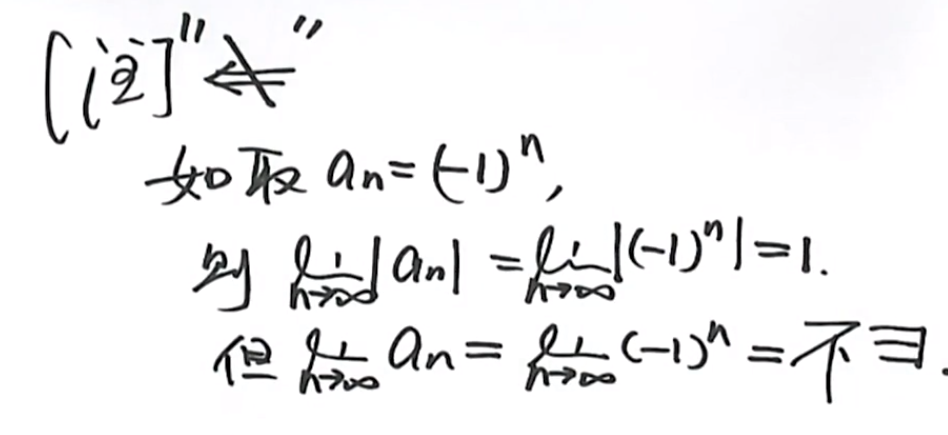 [注]"⇍"
如取 aₙ=(-1)ⁿ,
则 lim_{n→∞}|aₙ| = lim_{n→∞}|(-1)ⁿ|=1.
但 lim_{n→∞} aₙ = lim_{n→∞} (-1)ⁿ = 不∃.